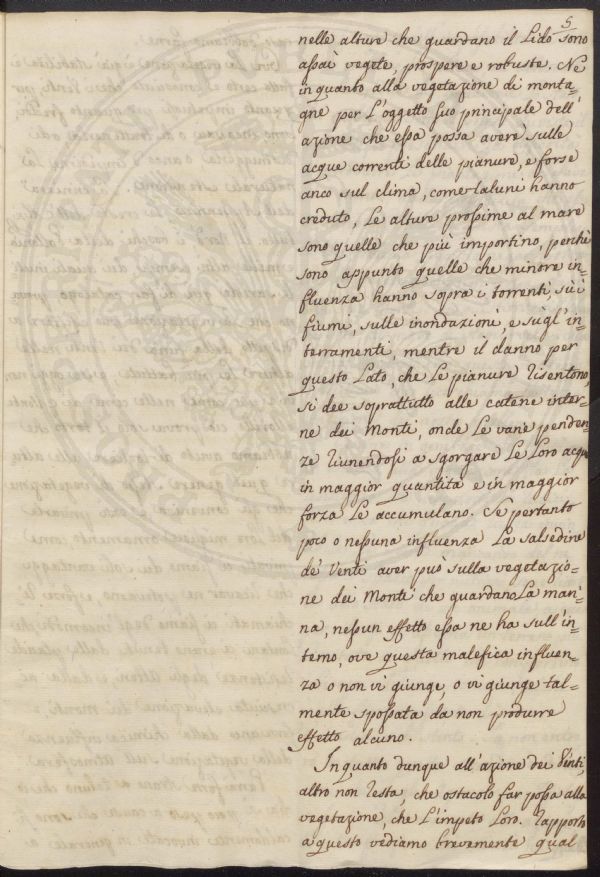 5
nelle alture che guardano il Lido sono
assai vegete, prospere e robuste. Ne
in quanto alla vegetazione di monta=
gne per l'oggetto suo principale dell'
azione che essa possa avere sulle
acque correnti delle pianure, e forse
anco sul clima, come taluni hanno
creduto, Le alture prossime al mare
sono quelle che più importino, perchè
sono appunto quelle che minore in=
fluenza hanno sopra i torrenti, sù i
fiumi, sulle inondazioni, e sugl'in=
terramenti, mentre il danno per
questo Lato, che Le pianure risentono,
si dee soprattutto alle catene inter=
ne dei Monti, onde Le varie penden=
ze riunendosi a sgorgare Le Loro acque
in maggior quantità e in maggior
forza Le accumulano. Se pertanto
poco o nessuna influenza La salsedine
de' Venti aver può sulla vegetazio=
ne dei Monti che guardano La mari=
na, nessun effetto essa ne ha sull'in=
terno, ove questa malefica influen=
za o non vi giunge, o vi giunge tal=
mente spossata da non produrre
effetto alcuno.
In quanto dunque all'azione dei Venti,
altro non resta, che ostacolo far possa alla
vegetazione, che L'impeto Loro. Rapporto
a questo vediamo brevemente qual